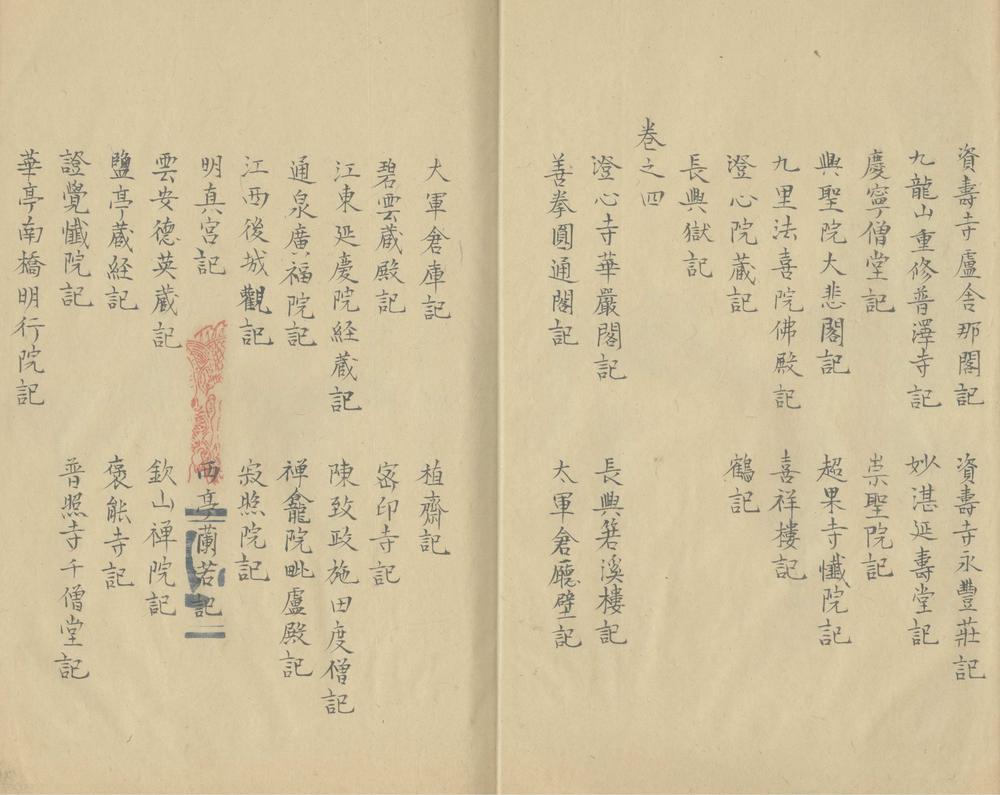 資壽寺盧舍那閣記　資壽寺永豐莊記
九龍山重修普澤寺記　妙湛延壽堂記
慶寧僧堂記　崇聖院記
興聖院大悲閣記　超果寺懺院記
九里法喜院佛殿記　喜祥樓記
澄心院藏記　鶴記
長興獄記
卷之四
澄心寺華嚴閣記　長興箬溪樓記
善拳圓通閣記　太軍倉廳壁記
大軍倉庫記　植齋記
碧雲藏殿記　密印寺記
江東延慶院経藏記　陳致政施田度僧記
通泉廣福院記　禅龕院毗盧殿記
江西後城觀記　寂照院記
明真宮記　西亭蘭若記
雲安德英藏記　欽山禅院記
鹽亭藏経記　褒能寺記
證覺懺院記　普照寺千僧堂記
華亭南橋明行院記